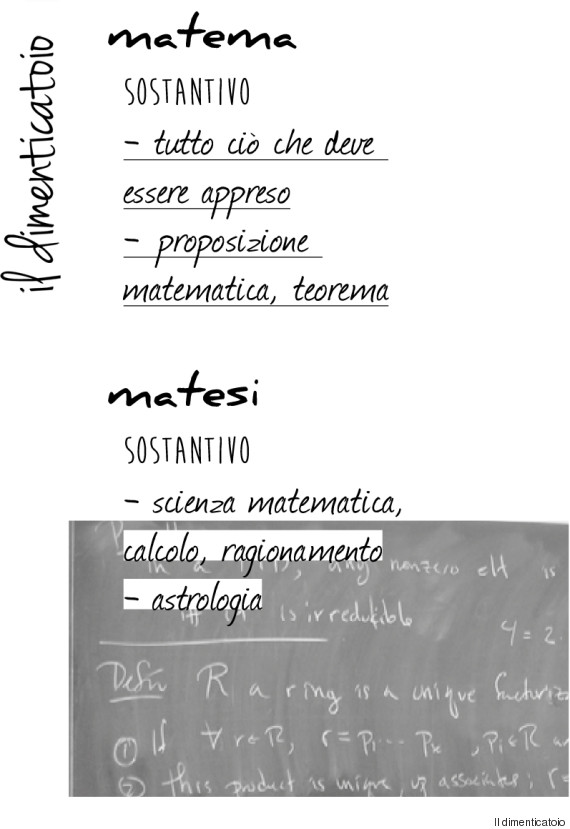 il dimenticatoio
matema
SOSTANTIVO
- tutto ciò che deve
essere appreso
- proposizione
matematica, teorema
matesi
SOSTANTIVO
- scienza matematica,
calcolo, ragionamento
- astrologia
in a, any nonzero elt is
iff it is irreducible
y = 2.
Defn R a ring is a unique
① If ∀ r ∈ R, r = P₁ ... Pₖ, Pᵢ ∈ R
② this product is unique, up associates; r =
Il dimenticatoio